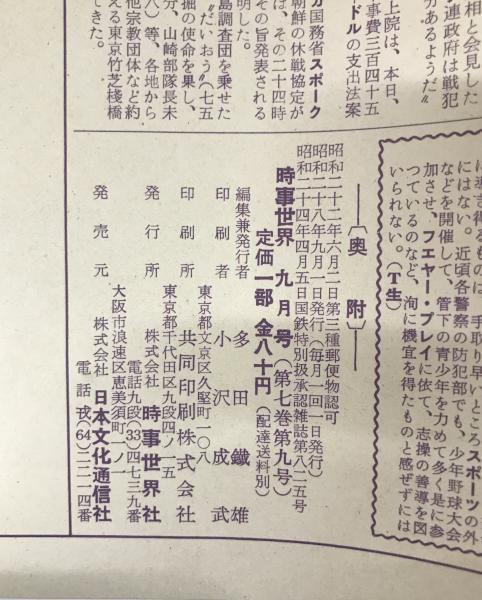 相と会見した
連政府は戦犯
分あるようだ〃
上院は、本日、
事費三百四十五
ドルの支出法案
カ国務省スポーク
朝鮮の休戦協定が
は、その二十四時
その旨発表される
明した。
島調査団を乗せた
〝だいおう〟(七五
掘の使命を果し、
分、山崎部隊長未
八)等、各地から
他宗教団体など約
える東京竹芝棧橋
てきた。
は導き得るものは、手取り早いところスポーツの外
にはない。近頃各警察の防犯部でも、少年野球大会
などを開催して、管下の青少年を力めて多く是に参
加させ、フエヤー・プレイに依て、志操の善導を図
つているのなど、洵に機宜を得たものと感ぜずには
いられない。(T生)
〔奥附〕
昭和二十二年六月二日第三種郵便物認可
昭和二十八年九月一日発行(毎月一回一日発行)
昭和二十四年四月五日国鉄特別扱承認雑誌第八二五号
時事世界 九月号(第七巻第九号)
定価一部 金八十円(配達送料別)
編集兼発行者 多田鐵雄
印刷者 小沢成武
東京都文京区久堅町一〇八
印刷所 共同印刷株式会社
東京都千代田区九段四ノ一五
発行所 株式会社 時事世界社
電話九段(33)四七三九番
大阪市浪速区恵美須町一ノ一
発売元 株式会社 日本文化通信社
電話戎(64)二二一四番